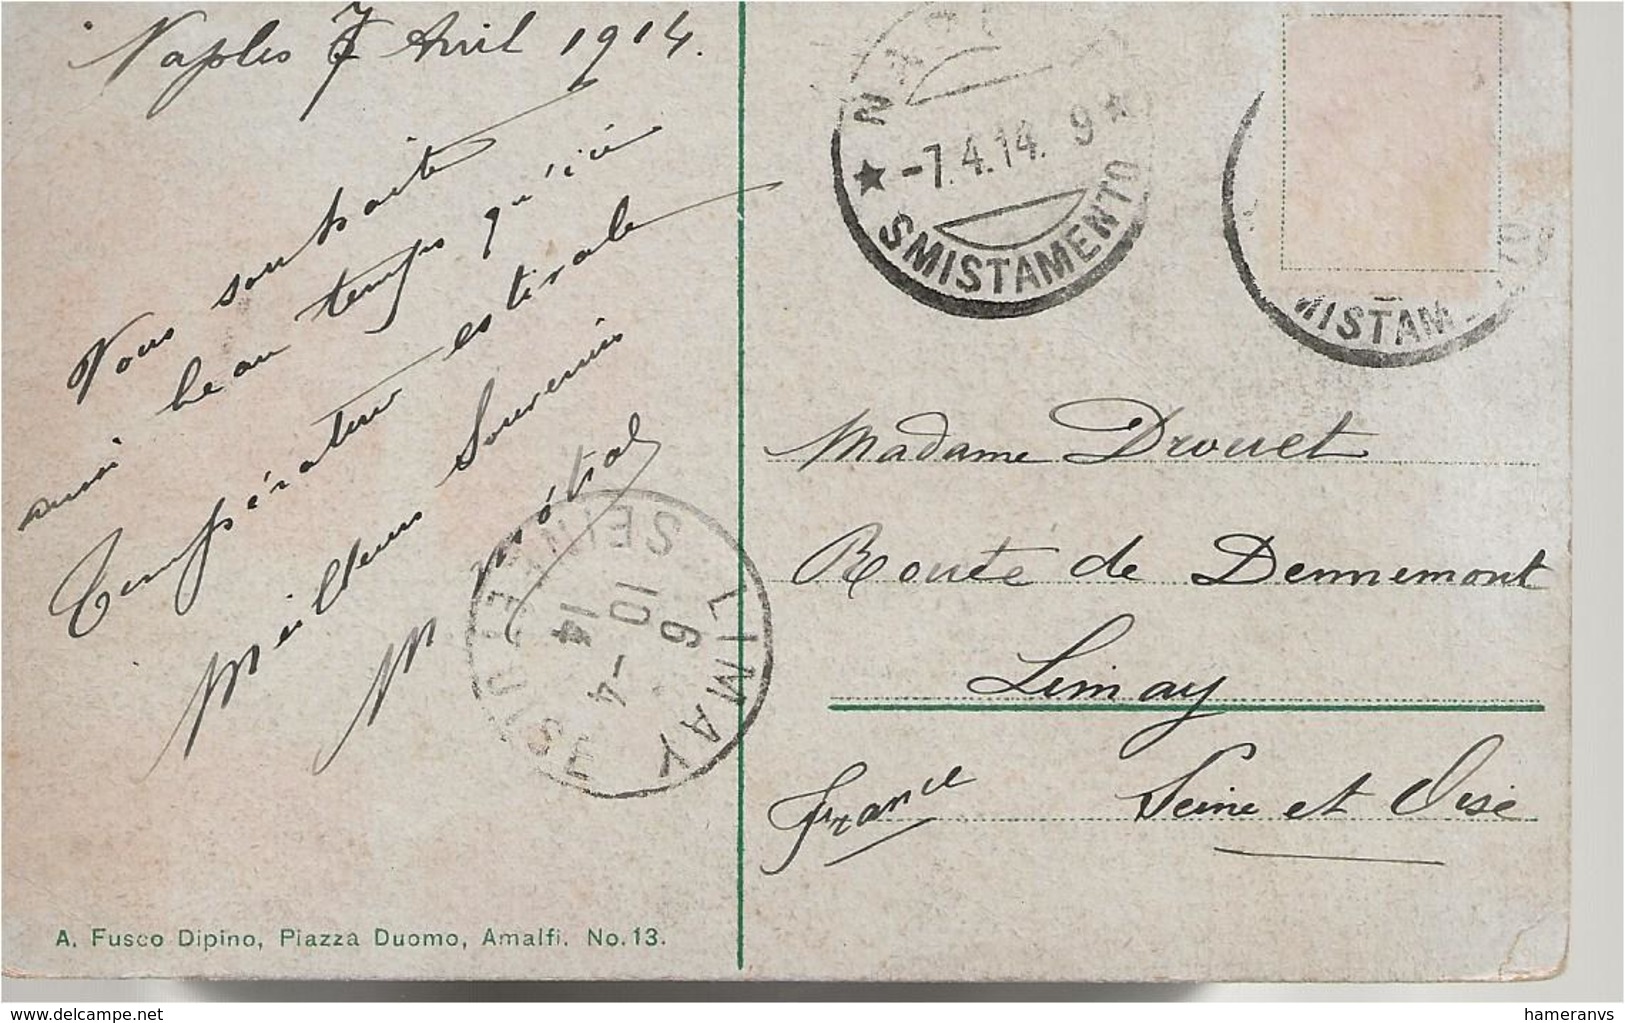 Naples 7 Avril 1914.
Vous souhaite
aussi beau temps qu'ici
Température estivale
Meilleurs Souvenirs
M
A. Fusco Dipino, Piazza Duomo, Amalfi. No. 13.
NAPOLI
-7.4.14. 9
SMISTAMENTO
MISTAM
LIMAY
6
10-4
14
SEINE ET OISE
Madame Drouet
Route de Dennemont
Limay
Seine et Oise
France
delcampe.net
hameranvs